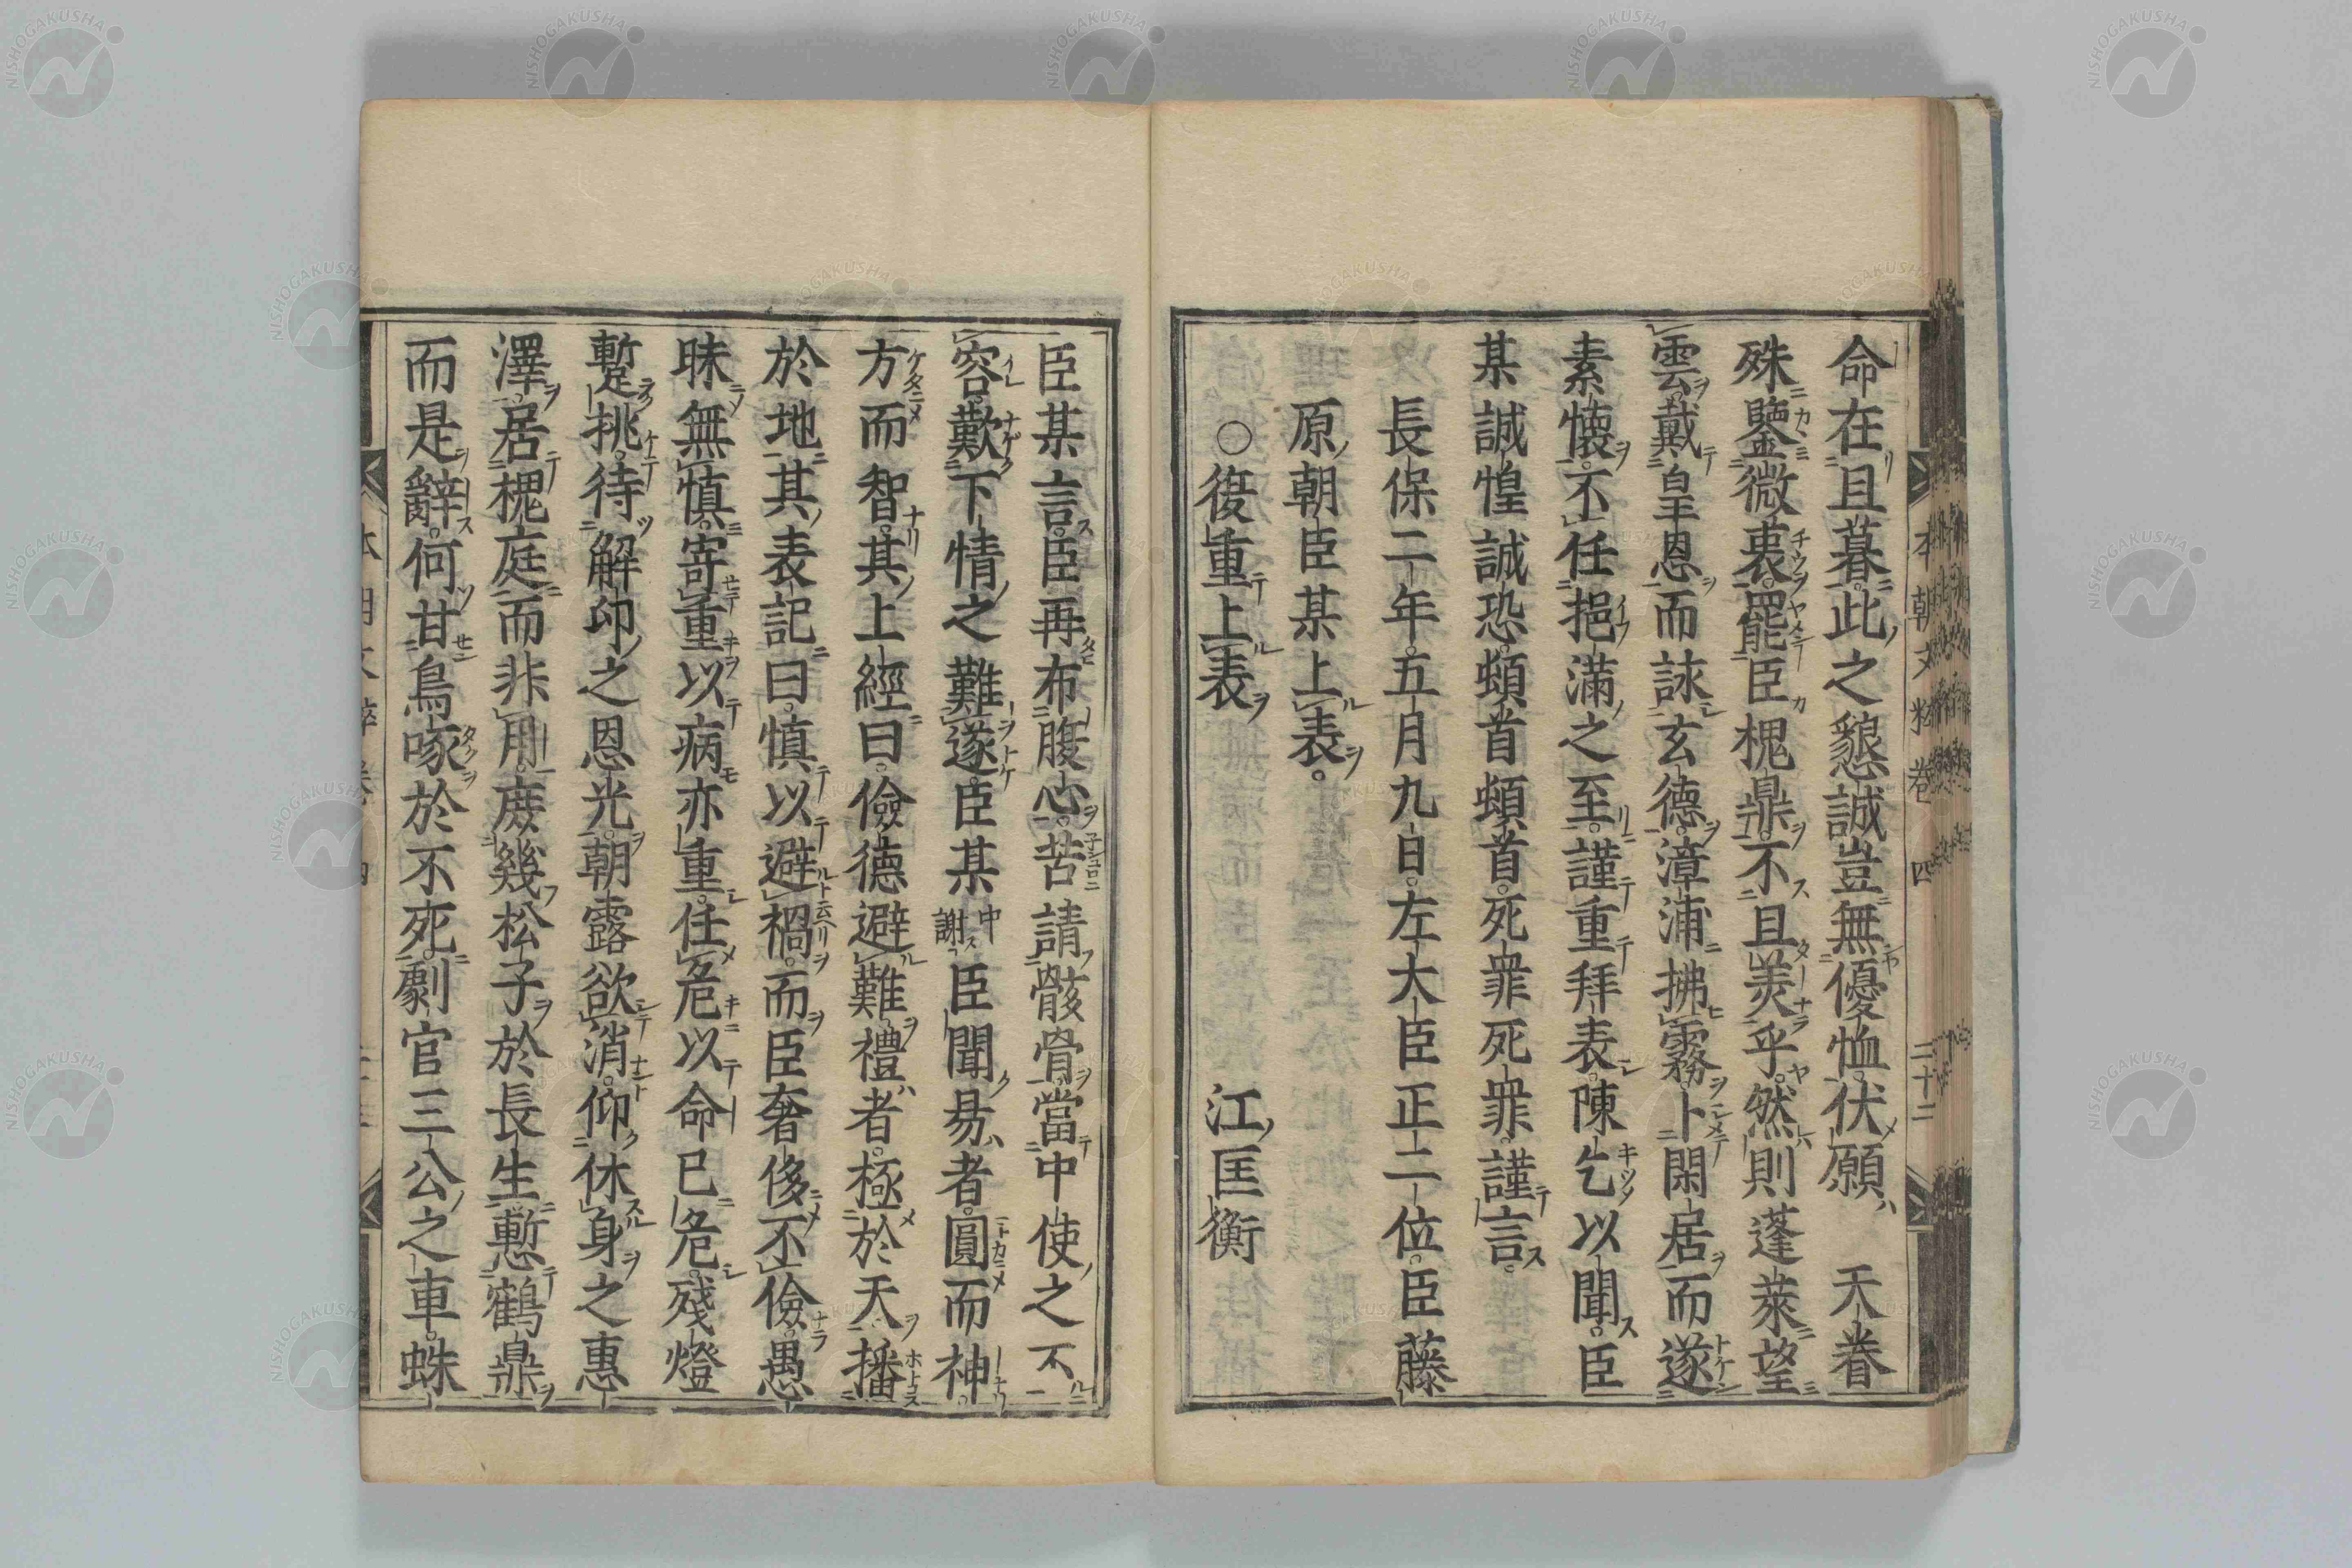 命在且暮此之懇誠豈無優恤伏願　天眷
殊鑒微衷罷臣槐鼎不且美乎然則蓬萊望
雲戴皇恩而詠玄德漳浦拂霧卜閑居而遂
素懷不任挹滿之至謹重拜表陳乞以聞臣
某誠惶誠恐頓首頓首死罪死罪謹言
長保二年五月九日左大臣正二位臣藤
原朝臣某上表
○復重上表　江匡衡
本朝文粹卷四　二十二
臣某言臣再布腹心苦請骸骨當中使之不
容歎下情之難遂臣某中謝臣聞易者圓而神
方而智其上經曰儉德避難禮者極於天播
於地其表記曰慎以避禍而臣奢侈不儉愚
昧無慎寄重以病亦重任危以命已危殘燈
暫挑待解印之恩光朝露欲消仰休身之惠
澤居槐庭而非用庶幾松子於長生慙鶴鼎
而是辭何甘烏啄於不死劇官三公之車蛛
NISHOGAKUSHA